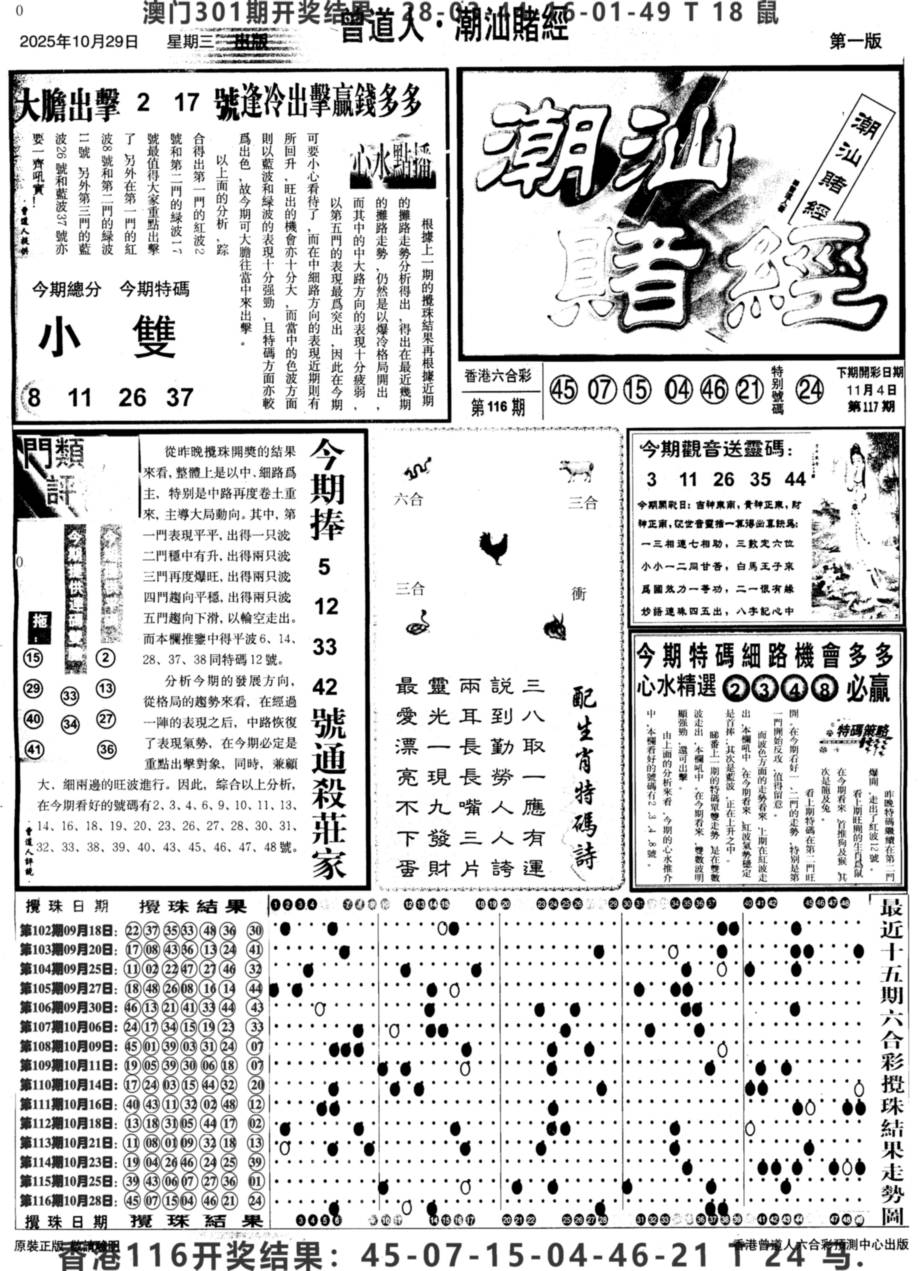 0
澳门301期开奖结果：28-03-
-16-01-49 T 18 鼠
2025年10月29日
星期三 出版
曾道人·潮汕賭經
第一版
大膽出擊 2 17 號逢冷出擊贏錢多多
心水點播
根據上一期的攪珠結果再根據近期
的攤路走勢分析得出，得出在最近幾期
的攤路走勢，仍然是以爆冷格局開出，
而其中的中大路方向的表現十分疲弱，
以第五門的表現最爲突出，因此在今期
可要小心看待了，而在中細路方向的表現近期則有
所回升，旺出的機會亦十分大，而當中的色波方面
則以藍波和綠波的表現十分强勁，且特碼方面亦較
爲出色，故今期可大膽往當中來出擊。
以上面的分析，踪
合得出第一門的紅波2
號和第二門的綠波17
號最值得大家重點出擊
了，另外在第一門的紅
波8號和第二門的綠波
11號，另外第三門的藍
波26號和藍波37號亦
要一齊吼實！
曾道人提供
今期總分 今期特碼
小 雙
8 11 26 37
潮汕賭經
潮汕賭經
香港六合彩
第116期
45 07 15 04 46 21
特别號碼
24
下期開彩日期
11月4日
第117期
門類評
今期提供連碼雙
拖：
15
29
40
41
33
34
2
13
27
36
從昨晚攪珠開獎的結果
來看，整體上是以中、細路爲
主，特别是中路再度卷土重
來，主導大局動向。其中，第
一門表現平平，出得一只波
二門穩中有升，出得兩只波
三門再度爆旺，出得兩只波
四門趨向平穩，出得兩只波
五門趨向下滑，以輪空走出。
而本欄推鑒中得平波6、14、
28、37、38同特碼12號。
分析今期的發展方向，
從格局的趨勢來看，在經過
一陣的表現之后，中路恢復
了表現氣勢，在今期必定是
重點出擊對象，同時，兼顧
大、細兩邊的旺波進行。因此，綜合以上分析，
在今期看好的號碼有2、3、4、6、9、10、11、13、
14、16、18、19、20、23、26、27、28、30、31、
32、33、38、39、40、43、45、46、47、48號。
曾道人評說
今期捧 5 12 33 42 號通殺莊家
六合
三合
三合
衝
配生肖特碼詩
三八取一應有運
說到勤勞人人誇
兩耳長長嘴三片
靈光一現九發財
最愛漂亮不下蛋
今期觀音送靈碼：
3 11 26 35 44
一三相連七相助，三數定六位
小小一二同甘苦，白馬王子來
爲國效力一等功，二一很有緣
妙語連珠四五出，八字記心中
今期特碼細路機會多多
心水精選 2 3 4 8 必贏
特碼策略
昨晚特碼繼續在第二門
爆開，走出了紅波12號。
看上期旺開的生肖爲鼠
在今期看來，首推狗及猴，其
次是龍及兔。
看上期特碼在第二門旺
開，在今期看好一、二門的走勢，特别是第
一門開始反攻，值得留意。
而波色方面的走勢看來，上期在紅波走
出，本欄吼中，在今期看來，紅波氣勢穩定
是首捧，其次是藍波，正在上升之中。
睇番上一期的特碼單雙走勢，是在雙數
波走出，本欄吼中，在今期看來，雙數波明
顯强勁，還可出擊。
由上面的分析來看，今期的心水推介
中，本欄看好的號碼有2、3、4、8號。
攪珠日期 攪珠結果
第102期09月18日：22 37 35 33 48 36 30
第103期09月20日：17 08 43 36 13 24 41
第104期09月25日：11 02 22 47 27 46 32
第105期09月27日：18 48 26 08 16 14 44
第106期09月30日：46 13 21 41 33 44 43
第107期10月06日：24 17 34 15 19 23 33
第108期10月09日：45 01 39 03 31 24 07
第109期10月11日：19 05 39 30 06 18 07
第110期10月14日：17 24 03 15 44 32 20
第111期10月16日：40 43 11 32 02 48 12
第112期10月18日：13 18 31 05 44 17 02
第113期10月21日：11 08 01 09 32 18 13
第114期10月23日：19 04 26 46 24 25 39
第115期10月25日：39 43 06 07 27 36 01
第116期10月28日：45 07 15 04 46 21 24
攪珠日期 攪珠結果
最近十五期六合彩攪珠結果走勢圖
原裝正版 敬請驗明
香港曾道人六合彩預測中心出版
香港116开奖结果：45-07-15-04-46-21 T 24 马.